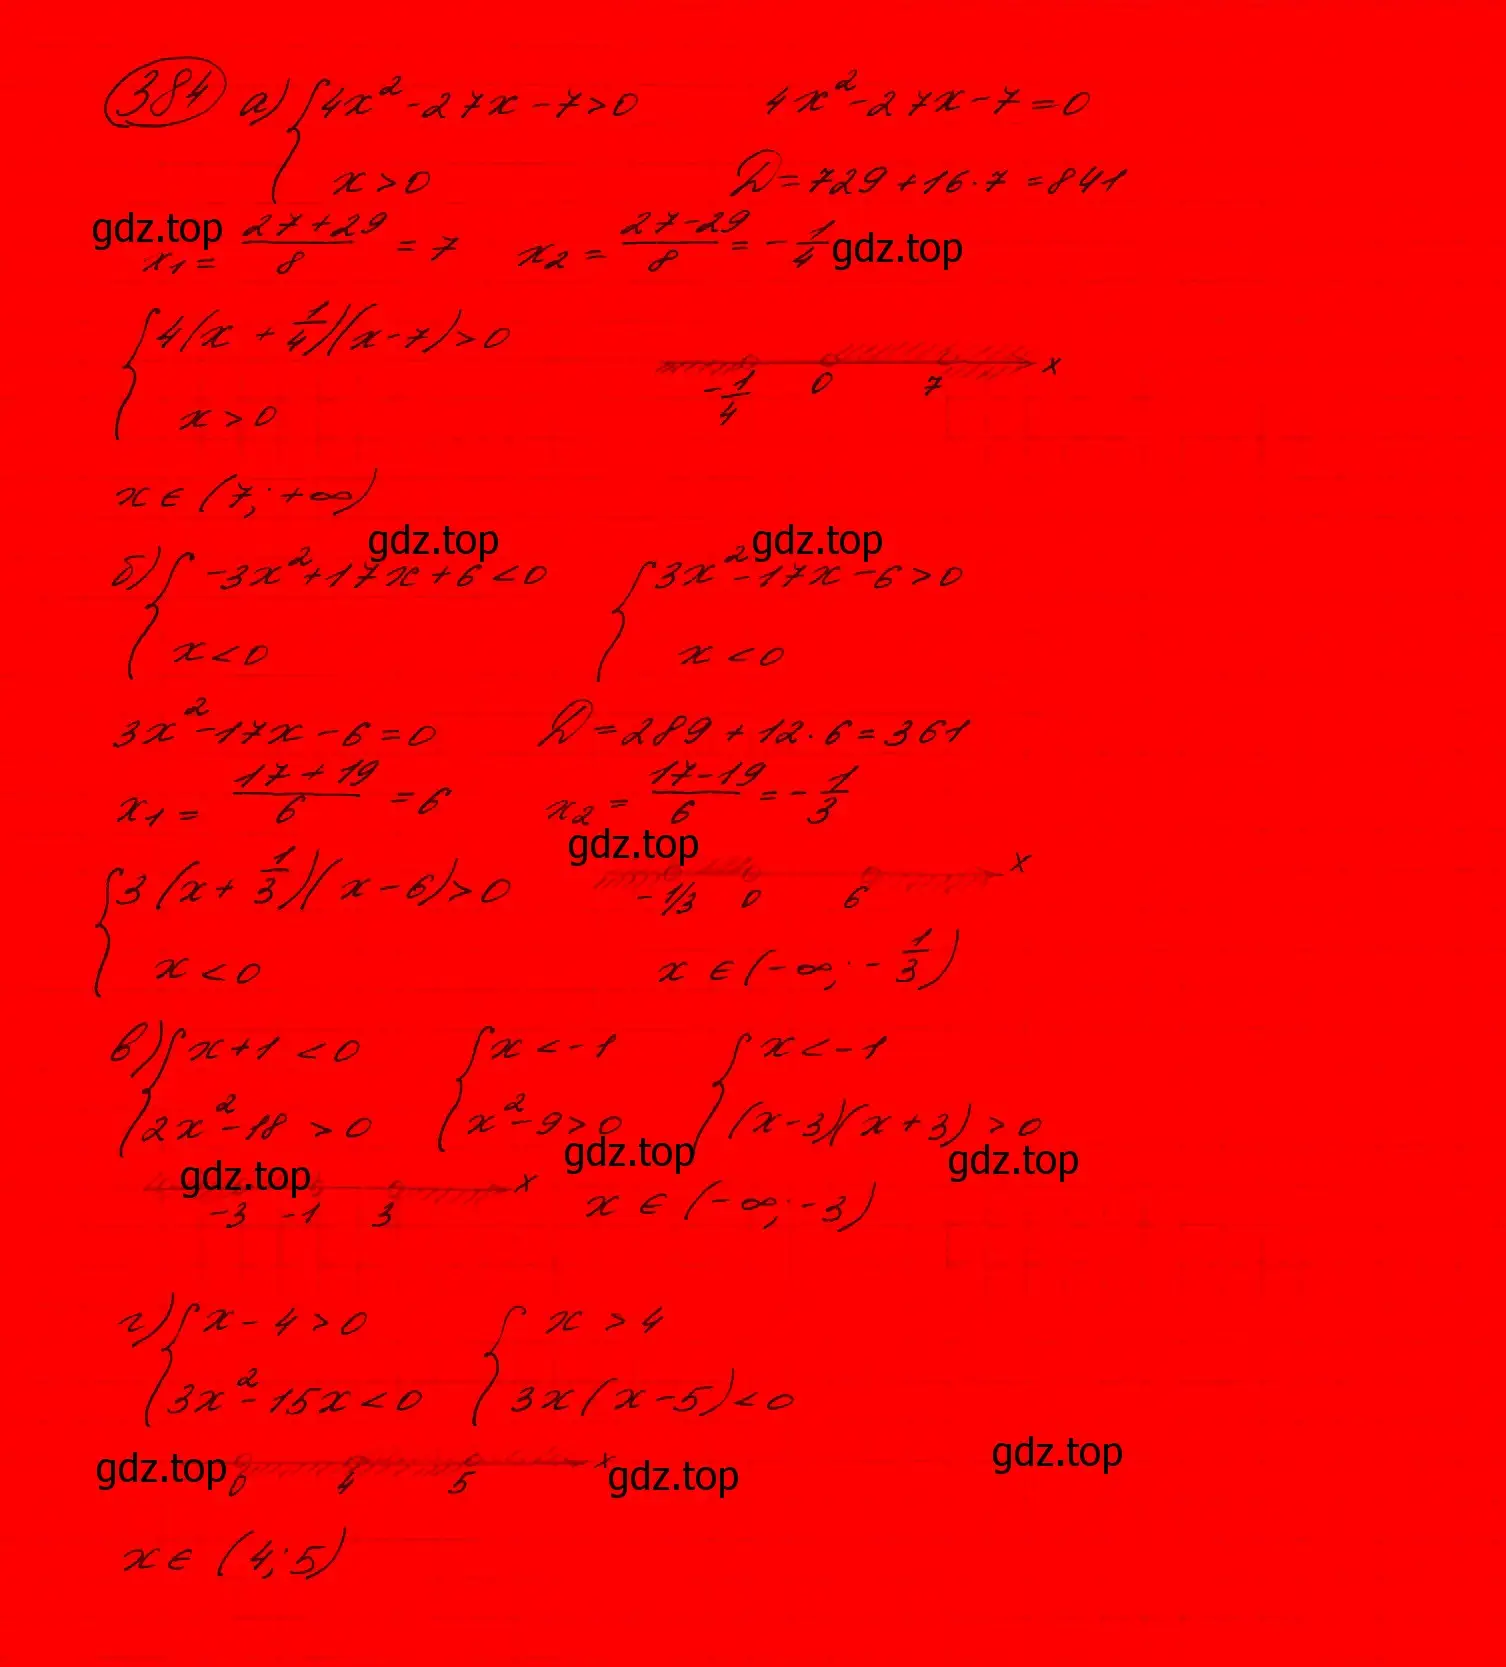 384 а) { 4x² - 27x - 7 > 0   4x² - 27x - 7 = 0
x > 0   D = 729 + 16·7 = 841
gdz.top   gdz.top
x₁ = (27 + 29)/8 = 7   x₂ = (27 - 29)/8 = -1/4
{ 4(x + 1/4)(x - 7) > 0
-1/4   0   7   x
x > 0
x ∈ (7; +∞)
gdz.top   gdz.top
б) { -3x² + 17x + 6 < 0   { 3x² - 17x - 6 > 0
x < 0   x < 0
3x² - 17x - 6 = 0   D = 289 + 12·6 = 361
x₁ = (17 + 19)/6 = 6   x₂ = (17 - 19)/6 = -1/3
gdz.top
{ 3(x + 1/3)(x - 6) > 0   -1/3   0   6   x
x < 0   x ∈ (-∞; -1/3)
в) { x + 1 < 0   { x < -1   { x < -1
2x² - 18 > 0   x² - 9 > 0   (x - 3)(x + 3) > 0
gdz.top   gdz.top   gdz.top
-3   -1   3   x   x ∈ (-∞; -3)
г) { x - 4 > 0   { x > 4
3x² - 15x < 0   3x(x - 5) < 0
gdz.top   gdz.top   gdz.top
0   4   5   x
x ∈ (4; 5)